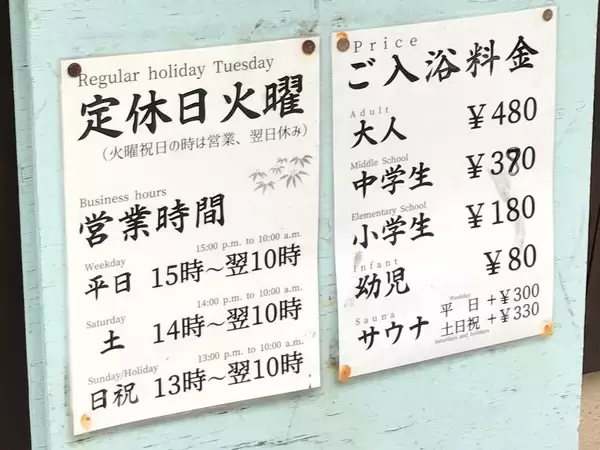 Regular holiday Tuesday
定休日火曜
（火曜祝日の時は営業、翌日休み）
Business hours
営業時間
Weekday 15:00 p.m. to 10:00 a.m.
平日 15時～翌10時
Saturday 14:00 p.m. to 10:00 a.m.
土 14時～翌10時
Sunday/Holiday 13:00 p.m. to 10:00 a.m.
日祝 13時～翌10時
Price
ご入浴料金
Adult
大人 ¥480
Middle School
中学生 ¥370
Elementary School
小学生 ¥180
Infant
幼児 ¥80
Sauna
サウナ
Weekday
平日 +¥300
土日祝 +¥330
Saturdays and holidays